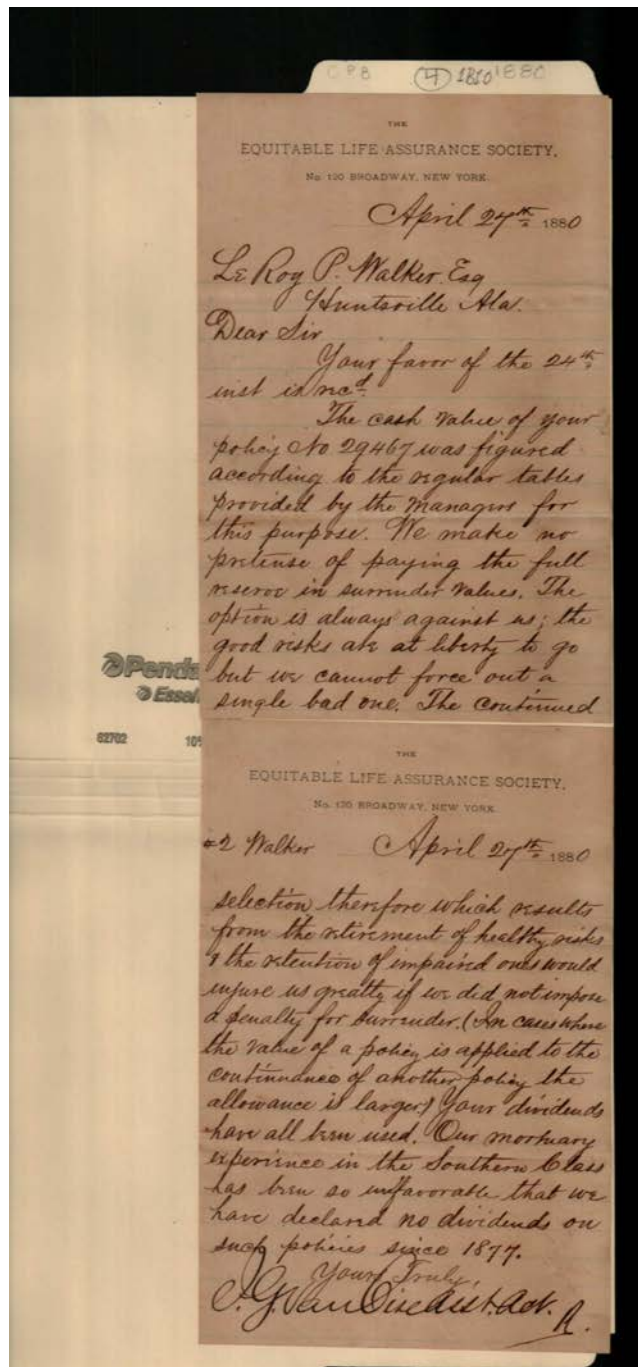 CPB (4) 1810 1880
THE
EQUITABLE LIFE ASSURANCE SOCIETY,
No. 120 BROADWAY, NEW YORK.
April 27th 1880
LeRoy P. Walker Esq
Huntsville Ala.
Dear Sir
Your favor of the 24th
inst is recd.
The cash value of your
policy No 29467 was figured
according to the regular tables
provided by the managers for
this purpose. We make no
pretense of paying the full
reserve in surrender values. The
option is always against us; the
good risks are at liberty to go
but we cannot force out a
single bad one. The continued
Penda
Essel
82702 10%
THE
EQUITABLE LIFE ASSURANCE SOCIETY,
No. 120 BROADWAY, NEW YORK.
#2 Walker April 27th 1880
selection therefore which results
from the retirement of healthy risks
& the retention of impaired ones would
injure us greatly if we did not impose
a penalty for surrender. (In cases where
the value of a policy is applied to the
continuance of another policy the
allowance is larger) Your dividends
have all been used. Our mortuary
experience in the Southern Class
has been so unfavorable that we
have declared no dividends on
such policies since 1877.
Yours Truly,
J. G. Van Cise Asst. Act.
R.